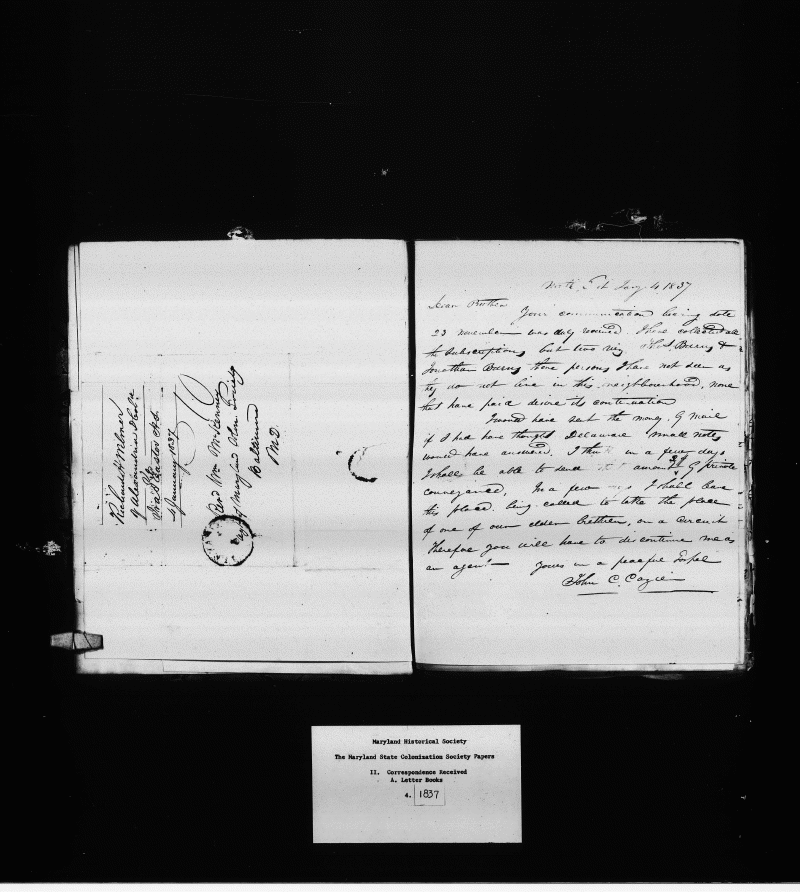 Richard H. Wilmer
of Alexandria D. Col.
Pro
Easter
January 1837
Revd Wm McKenney
of Maryland
Baltimore
MD.
North East Jany 4 1837
Dear Brother
Your communication bearing date
23 november was duly received. I have collected all
the Subscriptions but two viz. Thos. Burns &
Jonathan Burns these persons I have not seen as
they do not live in this neighbourhood, none
that have paid desire its continuation
I would have sent the money by mail
if I had have thought Delaware small notes
would have answered. I think in a few days
I shall be able to send amount by private
conveyance. In a few I shall leave
this place. being called to take the place
of one of our elder brethren, on a circuit
Therefore you will have to discontinue me as
an agent — Yours in a peaceful Gospel
John C.
Maryland Historical Society
The Maryland State Colonization Society Papers
II. Correspondence Received
A. Letter Books
4. 1837